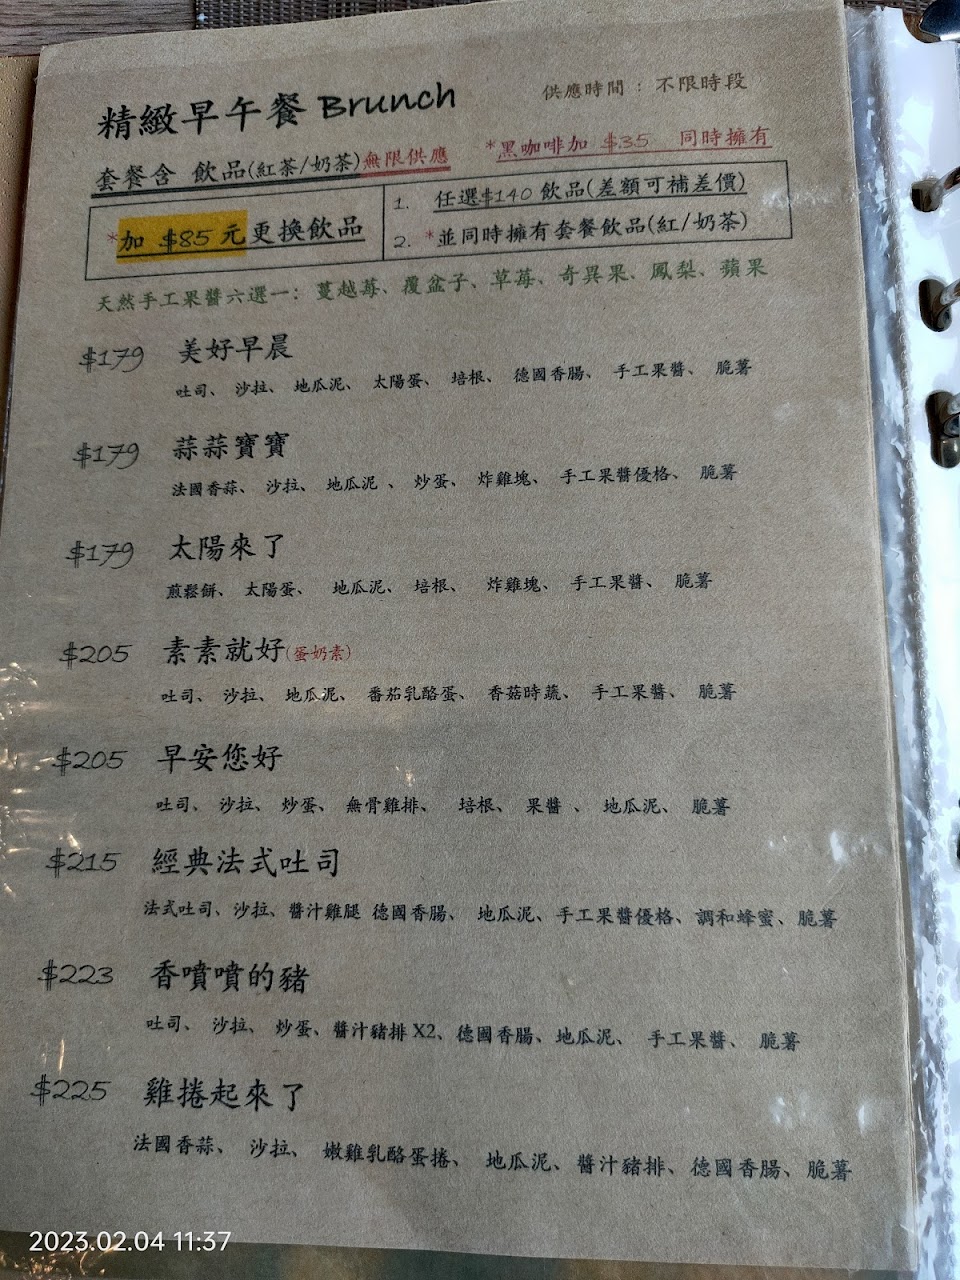 精緻早午餐 Brunch
供應時間：不限時段
套餐含 飲品(紅茶/奶茶)無限供應
*黑咖啡加 $35 同時擁有
*加 $85 元更換飲品
1. 任選$140 飲品(差額可補差價)
2. *並同時擁有套餐飲品(紅/奶茶)
天然手工果醬六選一：蔓越莓、覆盆子、草莓、奇異果、鳳梨、蘋果
$179 美好早晨
吐司、 沙拉、 地瓜泥、 太陽蛋、 培根、 德國香腸、 手工果醬、 脆薯
$179 蒜蒜寶寶
法國香蒜、 沙拉、 地瓜泥 、 炒蛋、 炸雞塊、 手工果醬優格、 脆薯
$179 太陽來了
煎鬆餅、 太陽蛋、 地瓜泥、 培根、 炸雞塊、 手工果醬、 脆薯
$205 素素就好(蛋奶素)
吐司、 沙拉、 地瓜泥、 番茄乳酪蛋、 香菇時蔬、 手工果醬、 脆薯
$205 早安您好
吐司、 沙拉、 炒蛋、 無骨雞排、 培根、 果醬 、 地瓜泥、 脆薯
$215 經典法式吐司
法式吐司、沙拉、醬汁雞腿 德國香腸、 地瓜泥、手工果醬優格、調和蜂蜜、脆薯
$223 香噴噴的豬
吐司、 沙拉、 炒蛋、醬汁豬排 X2、德國香腸、地瓜泥、 手工果醬、 脆薯
$225 雞捲起來了
法國香蒜、 沙拉、 嫩雞乳酪蛋捲、 地瓜泥、醬汁豬排、德國香腸、脆薯
2023.02.04 11:37